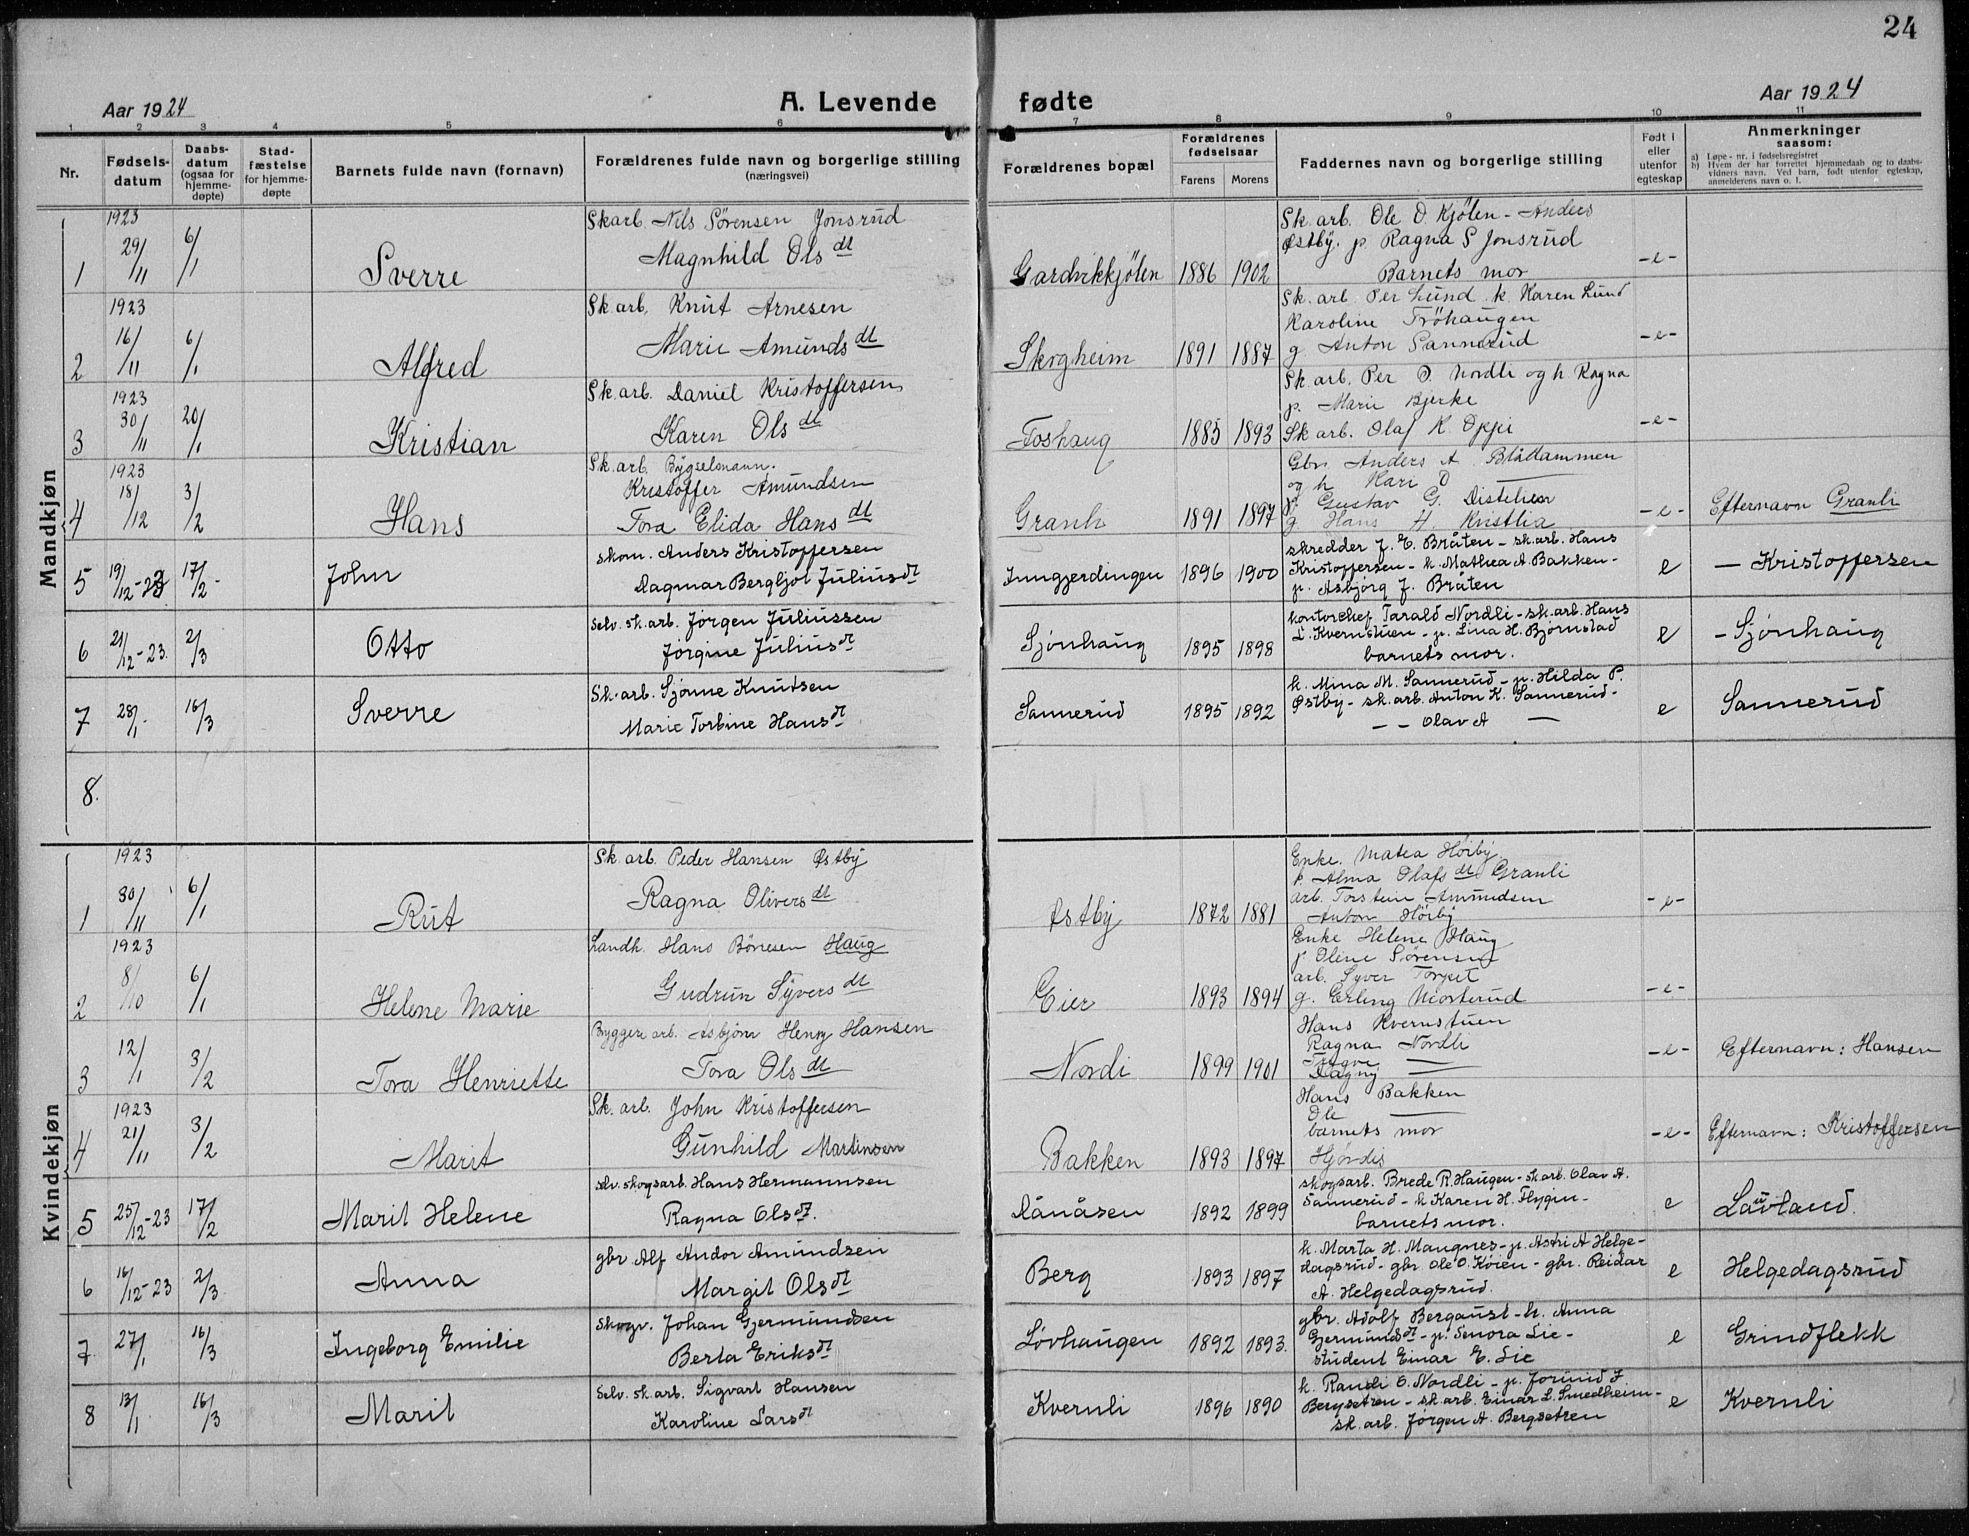 24
Aar 1924
A. Levende fødte
Aar 1924
1 2 3 4 5 6 7 8 9 10 11
Nr.
Fødsels-
datum
Daabs-
datum
(ogsaa for
hjemme-
døpte)
Stad-
fæstelse
for hjemme-
døpte
Barnets fulde navn (fornavn)
Forældrenes fulde navn og borgerlige stilling
(næringsvei)
Forældrenes bopæl
Forældrenes
fødselsaar
Farens
Morens
Faddernes navn og borgerlige stilling
Født i
eller
utenfor
egteskap
Anmerkninger
saasom:
a) Løpe-nr. i fødselsregistret
b) Hvem der har forrettet hjemmedaab og to daabs-
vidners navn. Ved barn, født utenfor egteskap,
anmelderens navn o. l.
Mandkjøn
1 1923 29/11 6/1 Sverre
Skarb. Nils Sørensen Jonsrud
Magnhild Olsdt
Gardvikkjølen 1886 1902
Sk. arb. Ole O. Kjølen - Anders
Østby. p Ragna S Jonsrud
Barnets mor
-e-
2 1923 16/11 6/1 Alfred
Sk arb. Knut Arnesen
Marie Amundsdt
Skogheim 1891 1887
Sk. arb. Per Lund k. Karen Lund
Karoline Trøhaugen
g Anton Sannerud
-e-
3 1923 30/11 20/1 Kristian
Sk arb. Daniel Kristoffersen
Karen Olsdt
Foshaug 1885 1893
Sk arb. Per O. Nordli og h Ragna
p. Marie Bjerke
Sk arb. Olaf K. Oppi
-e-
4 1923 18/12 3/2 Hans
Sk. arb. Bygselsmann.
Kristoffer Amundsen
Tora Elida Hansdt
Granli 1891 1897
Gbr Anders A Blåttammen
og h Kari O —
p. Gustav G.
g Hans H. Kristlia
-e- Efternavn Granli
5 19/12-23 17/2- John
skom. Anders Kristoffersen
Dagmar Bergljot Juliusdt
Inngjerdingen 1896 1900
skredder J. E. Bråten - sk. arb. Hans
Kristoffersen - k. Mathea A. Bakken -
p. Asbjørg J. Bråten
e — Kristoffersen
6 21/12-23. 2/3 Otto
Selv. sk. arb. Jørgen Juliussen
Jørgine Juliusdt
Sjønhaug 1895 1898
kontorchef Tarald Nordli - sk. arb. Hans
L. Kvernstuen - p. Lina H. Bjørnstad
barnets mor.
e - Sjønhaug
7 28/1- 16/3 Sverre
Sk. arb. Sjønne Knutsen
Marie Torbine Hansdt
Sannerud 1895 1892
k. Mina M. Sannerud - p. Hilda P.
Østby - sk. arb. Anton K. Sannerud -
— — Olav A —
e Sannerud
8.
Kvindekjøn
1 1923 30/11 6/1 Rut
Sk. arb. Peder Hansen Østby
Ragna Oliversdt
Østby 1872 1881
Enke. Matea Høiby
p. Alma Olafsdt Granli
arb. Torstein Amundsen
Anton Høiby
-e-
2 1923 8/10 6/1 Helene Marie
Landh. Hans Bønesen Haug
Gudrun Syversdt
Eier 1893 1894
Enke Helene Haug
p Oline Sørensen
arb. Syver Torpet
g. Erling Mosterud
-e-
3 12/1 3/2 Tora Henriette
Bygger arb. Asbjørn Henry Hansen
Tora Olsdt
Nordi 1899 1901
Hans Kvernstuen
Ragna Nordli
Trygve —
Dagny —
-e- Efternavn: Hansen
4 1923 21/11 3/2 Marit
Sk. arb. John Kristoffersen
Gunhild Martinsen
Bakken 1893 1897
Hans Bakken
Ole —
barnets mor
Hjørdis
-e- Efternavn: Kristoffersen
5 25/12-23 17/2 Marit Helene
selv. skogsarb. Hans Hermannsen
Ragna Olsdt.
Dånåsen 1892 1899
skogsarb. Brede R. Haugen - sk arb. Olav A.
Sannerud - k Karen H. Flygin -
barnets mor.
e Lauvland.
6 16/12-23 2/3. Anna
gbr Alf Andor Amundsen
Margit Olsdt
Berg 1893 1897
k. Marta H. Mangnes - p. Astri A Helge-
dagsrud - gbr Ole O. Køien - gbr. Reidar
A. Helgedagsrud.
e Helgedagsrud
7. 27/1 16/3 Ingeborg Emilie
skogv. Johan Gjermundsen
Berta Eriksdt
Lövhaugen 1892 1893.
gbr. Adolf Bergaust - k. Anna
Gjermundsdt - p. Senora Lie -
student Einar E. Lie
e Grindflekk
8 13/1 16/3 Marit
Selv. sk. arb. Sigvart Hansen
Karoline Larsdt
Kvernli 1896 1890
k. Randi O. Nordli - p. Jorund J.
Bergsetren - sk. arb. Einar L. Smedheim -
sk. arb. Jørgen A. Bergsetren
e Kvernli